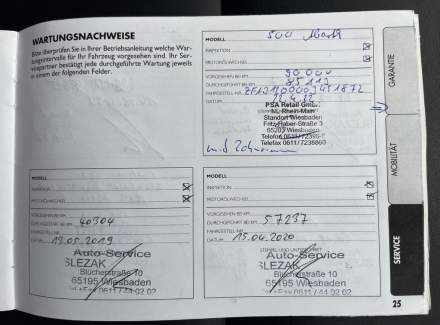 WARTUNGSNACHWEISE
Bitte überprüfen Sie in Ihrer Betriebsanleitung welche War-
tungsintervalle für Ihr Fahrzeug vorgesehen sind. Ihr Ser-
vicepartner bestätigt jede durchgeführte Wartung jeweils
in einem der folgenden Felder.
MODELL 500
INSPEKTION
MOTORÖLWECHSEL
VORGESEHEN BEI KM 90000
DURCHGEFÜHRT BEI KM
FAHRGESTELL-NR.
DATUM
PSA Retail GmbH
NL Rhein-Main
Standort Wiesbaden
Fritz-Haber-Straße 3
65203 Wiesbaden
Telefon 0611/
Telefax 0611/7238860
GARANTIE
MOBILITÄT
SERVICE
MODELL
INSPEKTION
MOTORÖLWECHSEL
VORGESEHEN BEI KM
DURCHGEFÜHRT BEI KM 40304
FAHRGESTELL-NR.
DATUM 13.05.2019
Auto-Service
SLEZAK
Blücherstraße 10
65195 Wiesbaden
0611 / 44 02 02
MODELL
INSPEKTION
MOTORÖLWECHSEL
VORGESEHEN BEI KM
DURCHGEFÜHRT BEI KM 57237
FAHRGESTELL-NR.
DATUM 15.04.2020
STEMPEL UND UNTERSCHRIFT
Auto-Service
SLEZAK
Blücherstraße 10
65195 Wiesbaden
0611 / 44 02 02
25